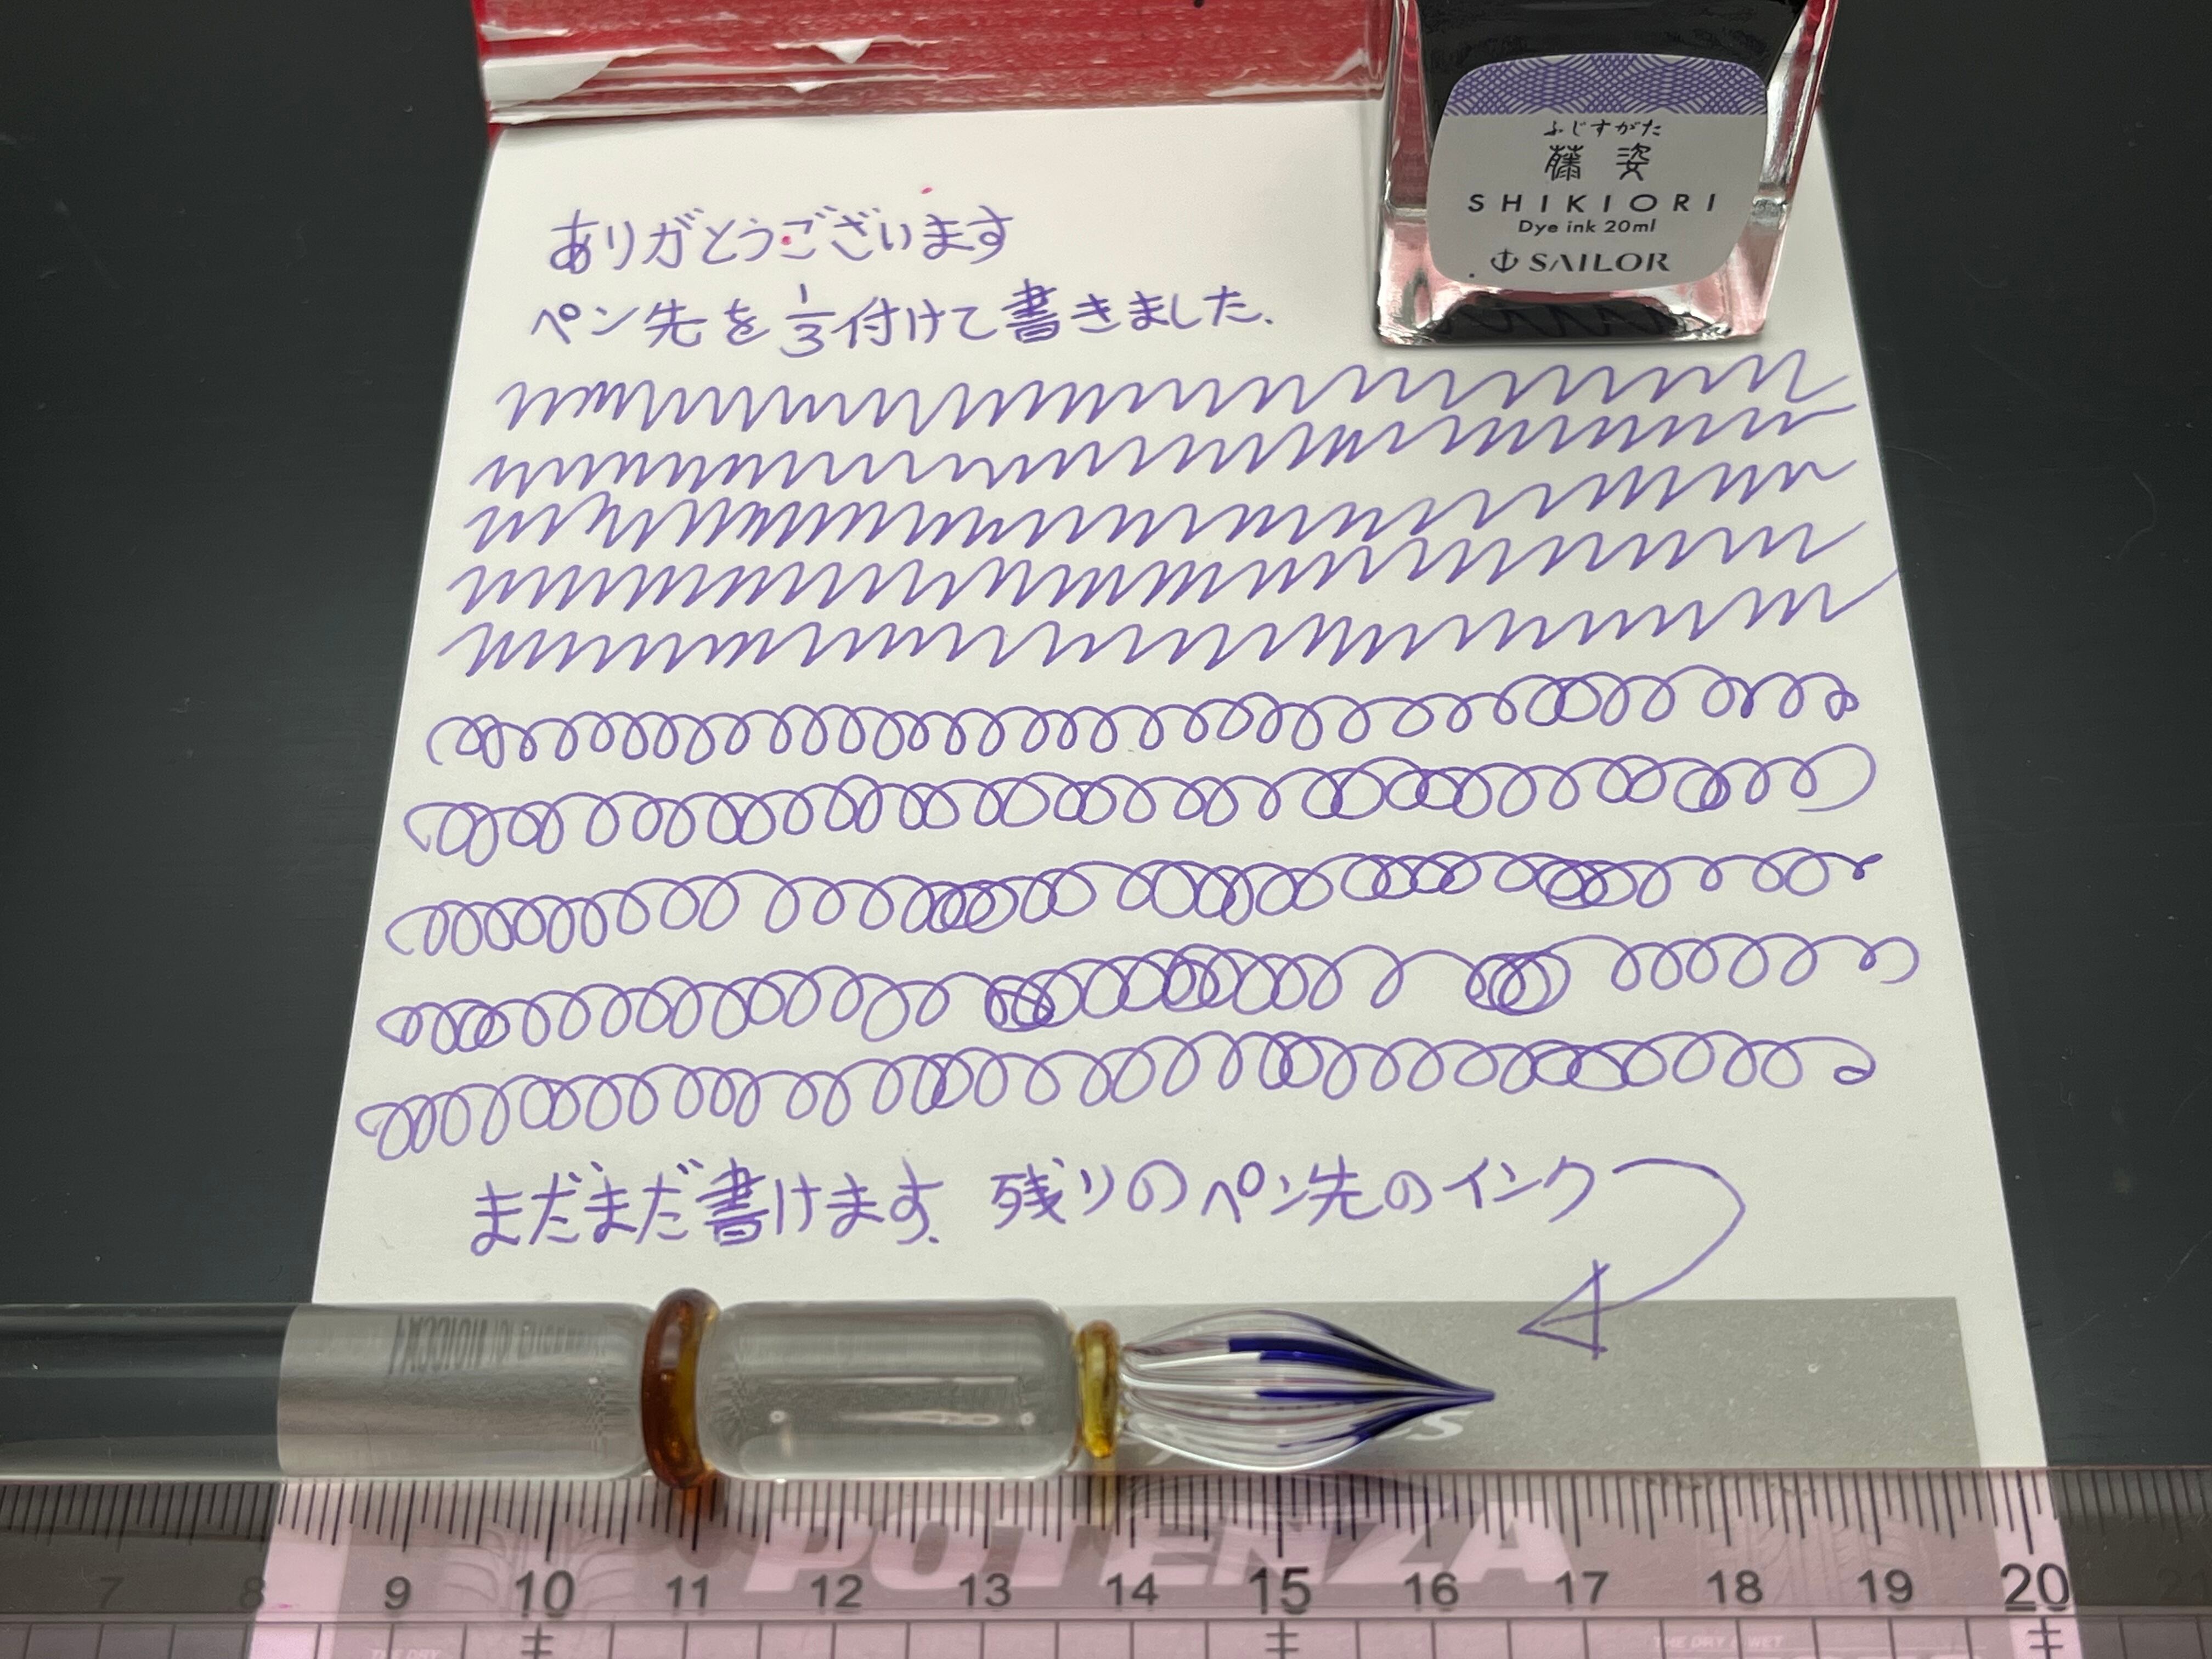 ふじすがた
藤姿
SHIKIORI
Dye ink 20ml
SAILOR
ありがとうございます
ペン先を1/3付けて書きました.
まだまだ書けます. 残りのペン先のインク
POTENZA
7 8 9 10 11 12 13 14 15 16 17 18 19 20 21
THE DRY
THE DRY & WET